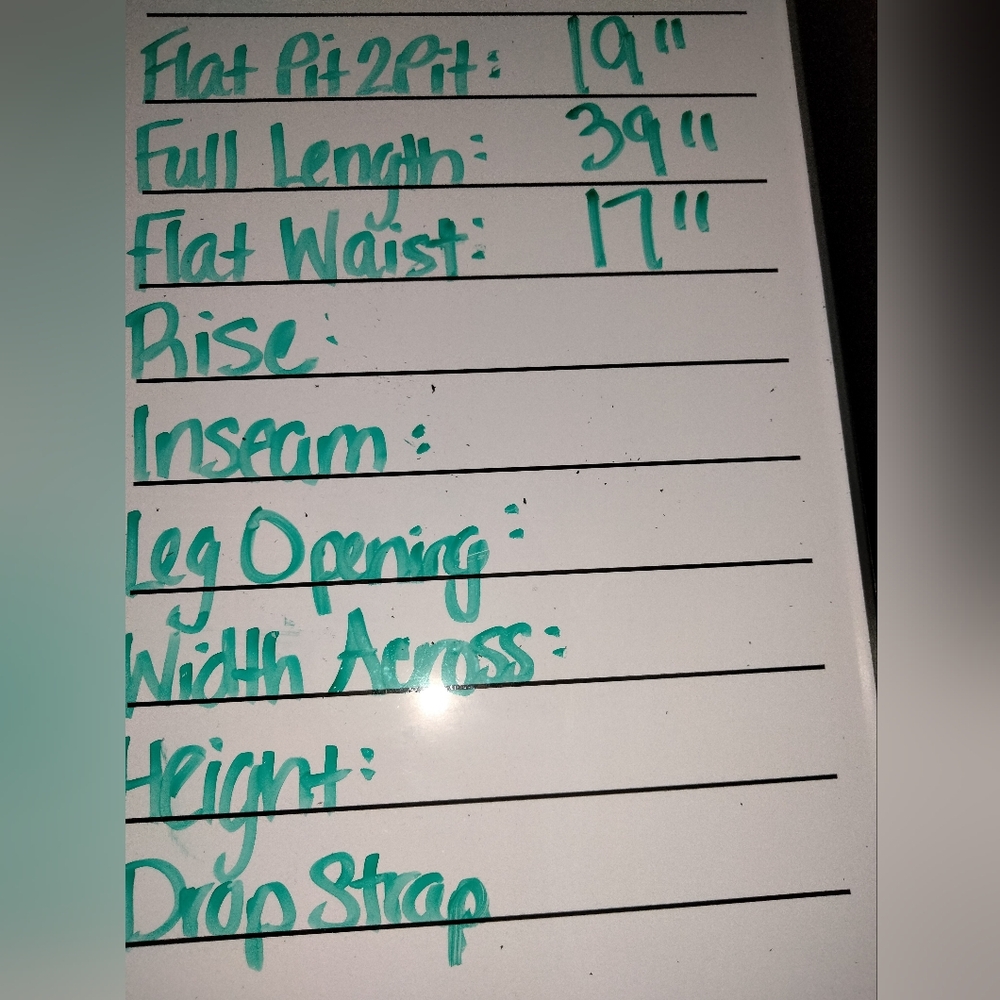 Flat Pit2Pit: 19"
Full Length: 39"
Flat Waist: 17"
Rise:
Inseam:
Leg Opening:
Width Across:
Height:
Drop Strap